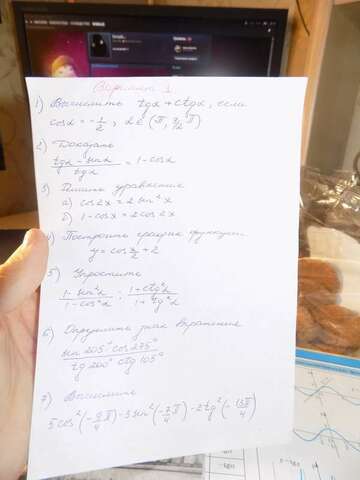 Вариант 1
1) Вычислить tgα + ctgα, если
cosα = -1/2, α ∈ (π, 3/2 π)
2) Доказать
(tgα - sinα)/tgα = 1 - cosα
3) Решить уравнения
а) cos2x = 2 sin²x
б) 1 - cosx = 2cos2x
4) Построить график функции
y = cos x/2 + 2
5) Упростите
(1 - sin²α)/(1 - cos²α) : (1 + ctg²α)/(1 + tg²α)
6) Определите знак выражения
(sin 205° cos 275°)/(tg 200° ctg 105°)
7) Вычислите